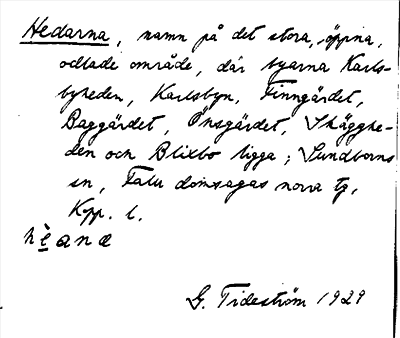 Hedarna, namn på det stora, öppna,
odlade område, där byarna Karls-
byheden, Karlsbyn, Finngärdet,
Baggärdet, Önsgärdet, Skägghe-
den och Blixbo ligga; Sundborns
sn, Falu domsagas norra tg,
Kopp. l.
G. Tideström 1929